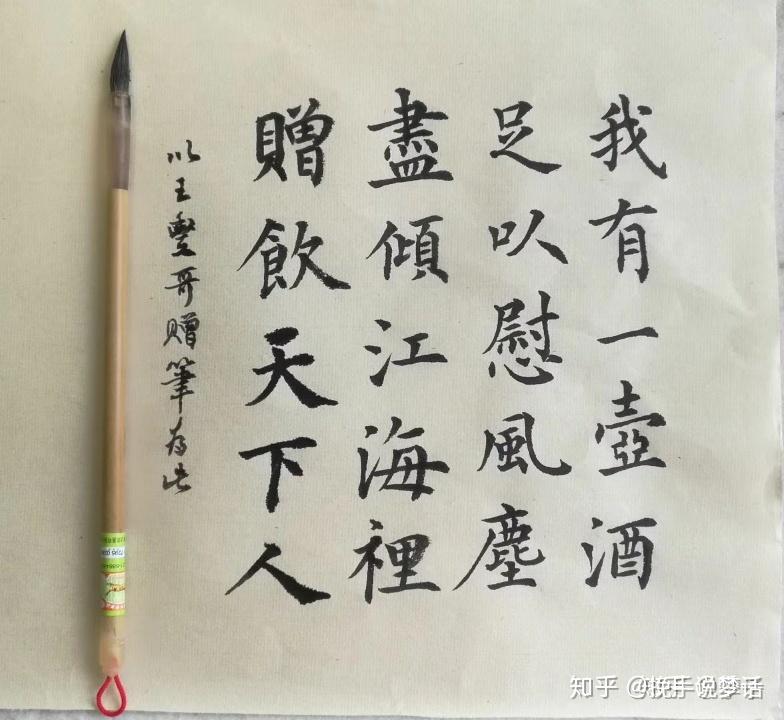 我有一壺酒
足以慰風塵
盡傾江海裡
贈飲天下人
以王艷哥贈筆為此
知乎